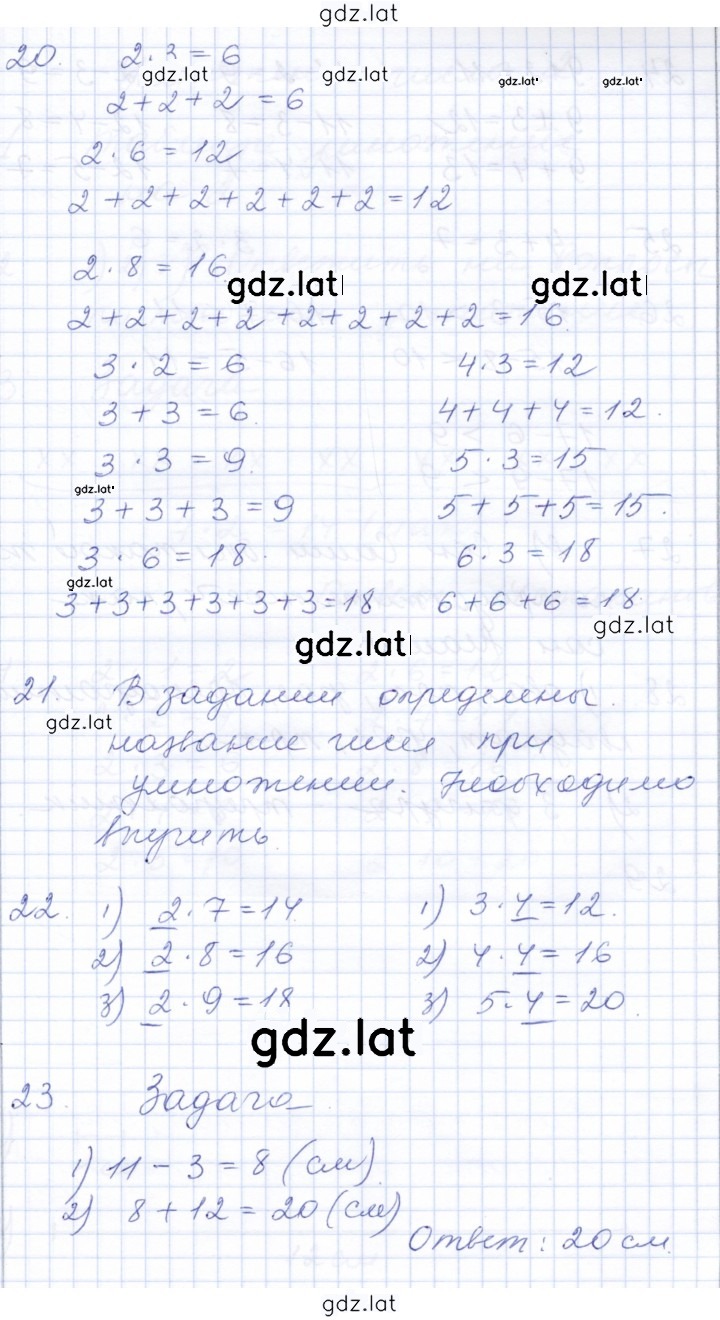 gdz.lat
20. 2·3=6
gdz.lat gdz.lat gdz.lat gdz.lat
2+2+2=6
2·6=12
2+2+2+2+2+2=12
2·8=16
gdz.lat gdz.lat
2+2+2+2+2+2+2+2=16.
3·2=6 4·3=12
3+3=6. 4+4+4=12.
3·3=9. 5·3=15
gdz.lat
3+3+3=9 5+5+5=15.
3·6=18. 6·3=18
gdz.lat
3+3+3+3+3+3=18 6+6+6=18.
gdz.lat
gdz.lat
21. В задании определены.
gdz.lat
название чисел при
умножении. Необходимо
22. 1) 2·7=14 1) 3·4=12.
2) 2·8=16 2) 4·4=16
3) 2·9=18 3) 5·4=20.
gdz.lat
23. Задача
1) 11-3=8 (см).
2) 8+12=20 (см)
Ответ: 20 см.
gdz.lat